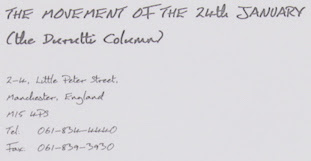 THE MOVEMENT OF THE 24th JANUARY
(the Durutti Column)
2-4, Little Peter Street,
Manchester, England
M15 4PS
Tel 061-834-4440
Fax. 061-839-3930